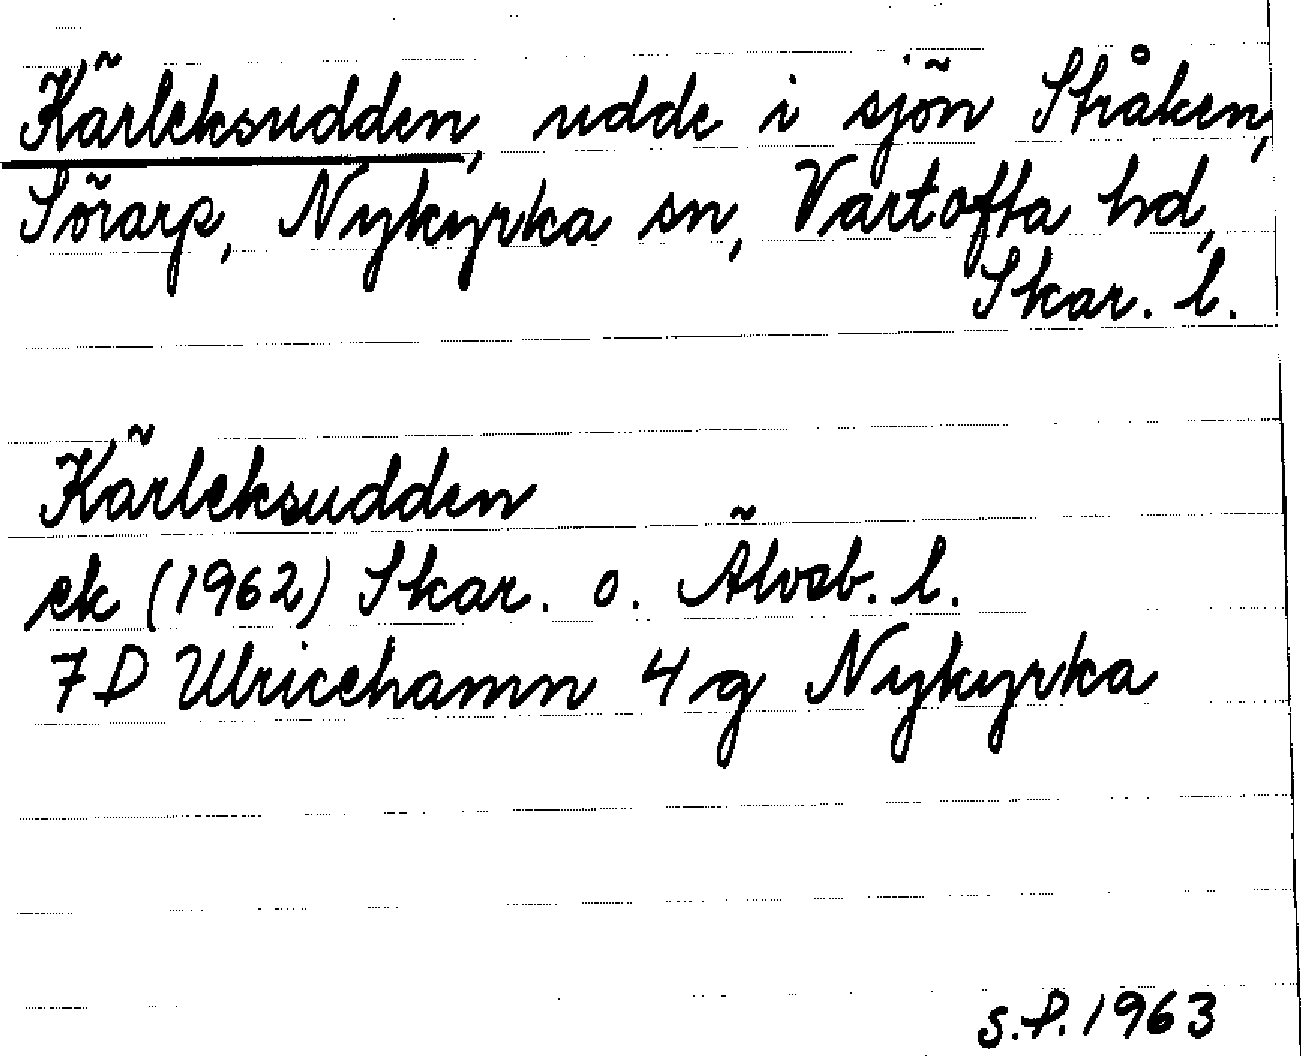 Kärleksudden, udde i sjön Stråken,
Sörarp, Nykyrka sn, Vartofta hd,
Skar. l.
Kärleksudden
ek (1962) Skar. o. Älvsb. l.
7 D Ulricehamn 4 g Nykyrka
S.P. 1963